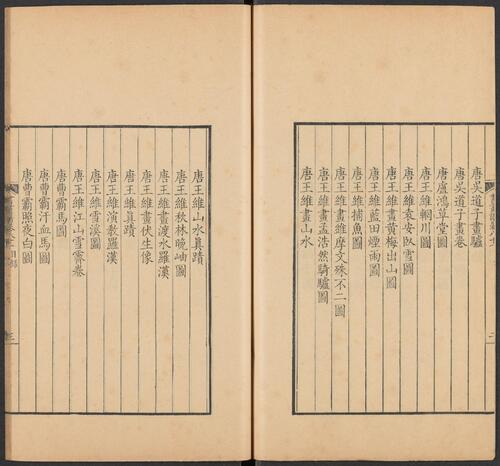 唐吳道子畫驢
唐吳道子畫卷
唐盧鴻草堂圖
唐王維輞川圖
唐王維袁安臥雪圖
唐王維畫黃梅出山圖
唐王維藍田煙雨圖
唐王維捕魚圖
唐王維畫維摩文殊不二圖
唐王維畫孟浩然騎驢圖
唐王維畫山水
唐王維山水真蹟
唐王維秋林晚岫圖
唐王維畫渡水羅漢
唐王維畫伏生像
唐王維真蹟
唐王維演教羅漢
唐王維雪溪圖
唐王維江山雪霽卷
唐曹霸馬圖
唐曹霸汗血馬圖
唐曹霸照夜白圖
三